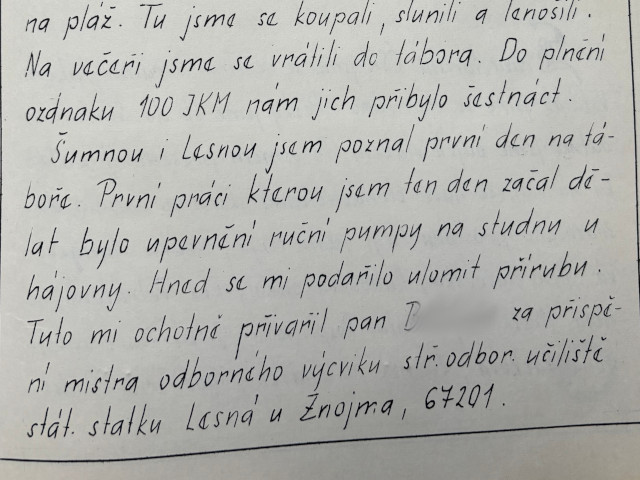 na pláž. Tu jsme se koupali, slunili a lenošili.
Na večeři jsme se vrátili do tábora. Do plnění
oznaku 100 JKM nám jich přibylo šestnáct.
Šumnou i Lesnou jsem poznal první den na tá-
boře. První práci kterou jsem ten den začal dě-
lat bylo upevnění ruční pumpy na studnu u
hájovny. Hned se mi podařilo ulomit přírubu.
Tuto mi ochotně přivařil pan za přispě-
ní mistra odborného výcviku stř. odbor. učiliště
stát. statku Lesná u Znojma, 67201.